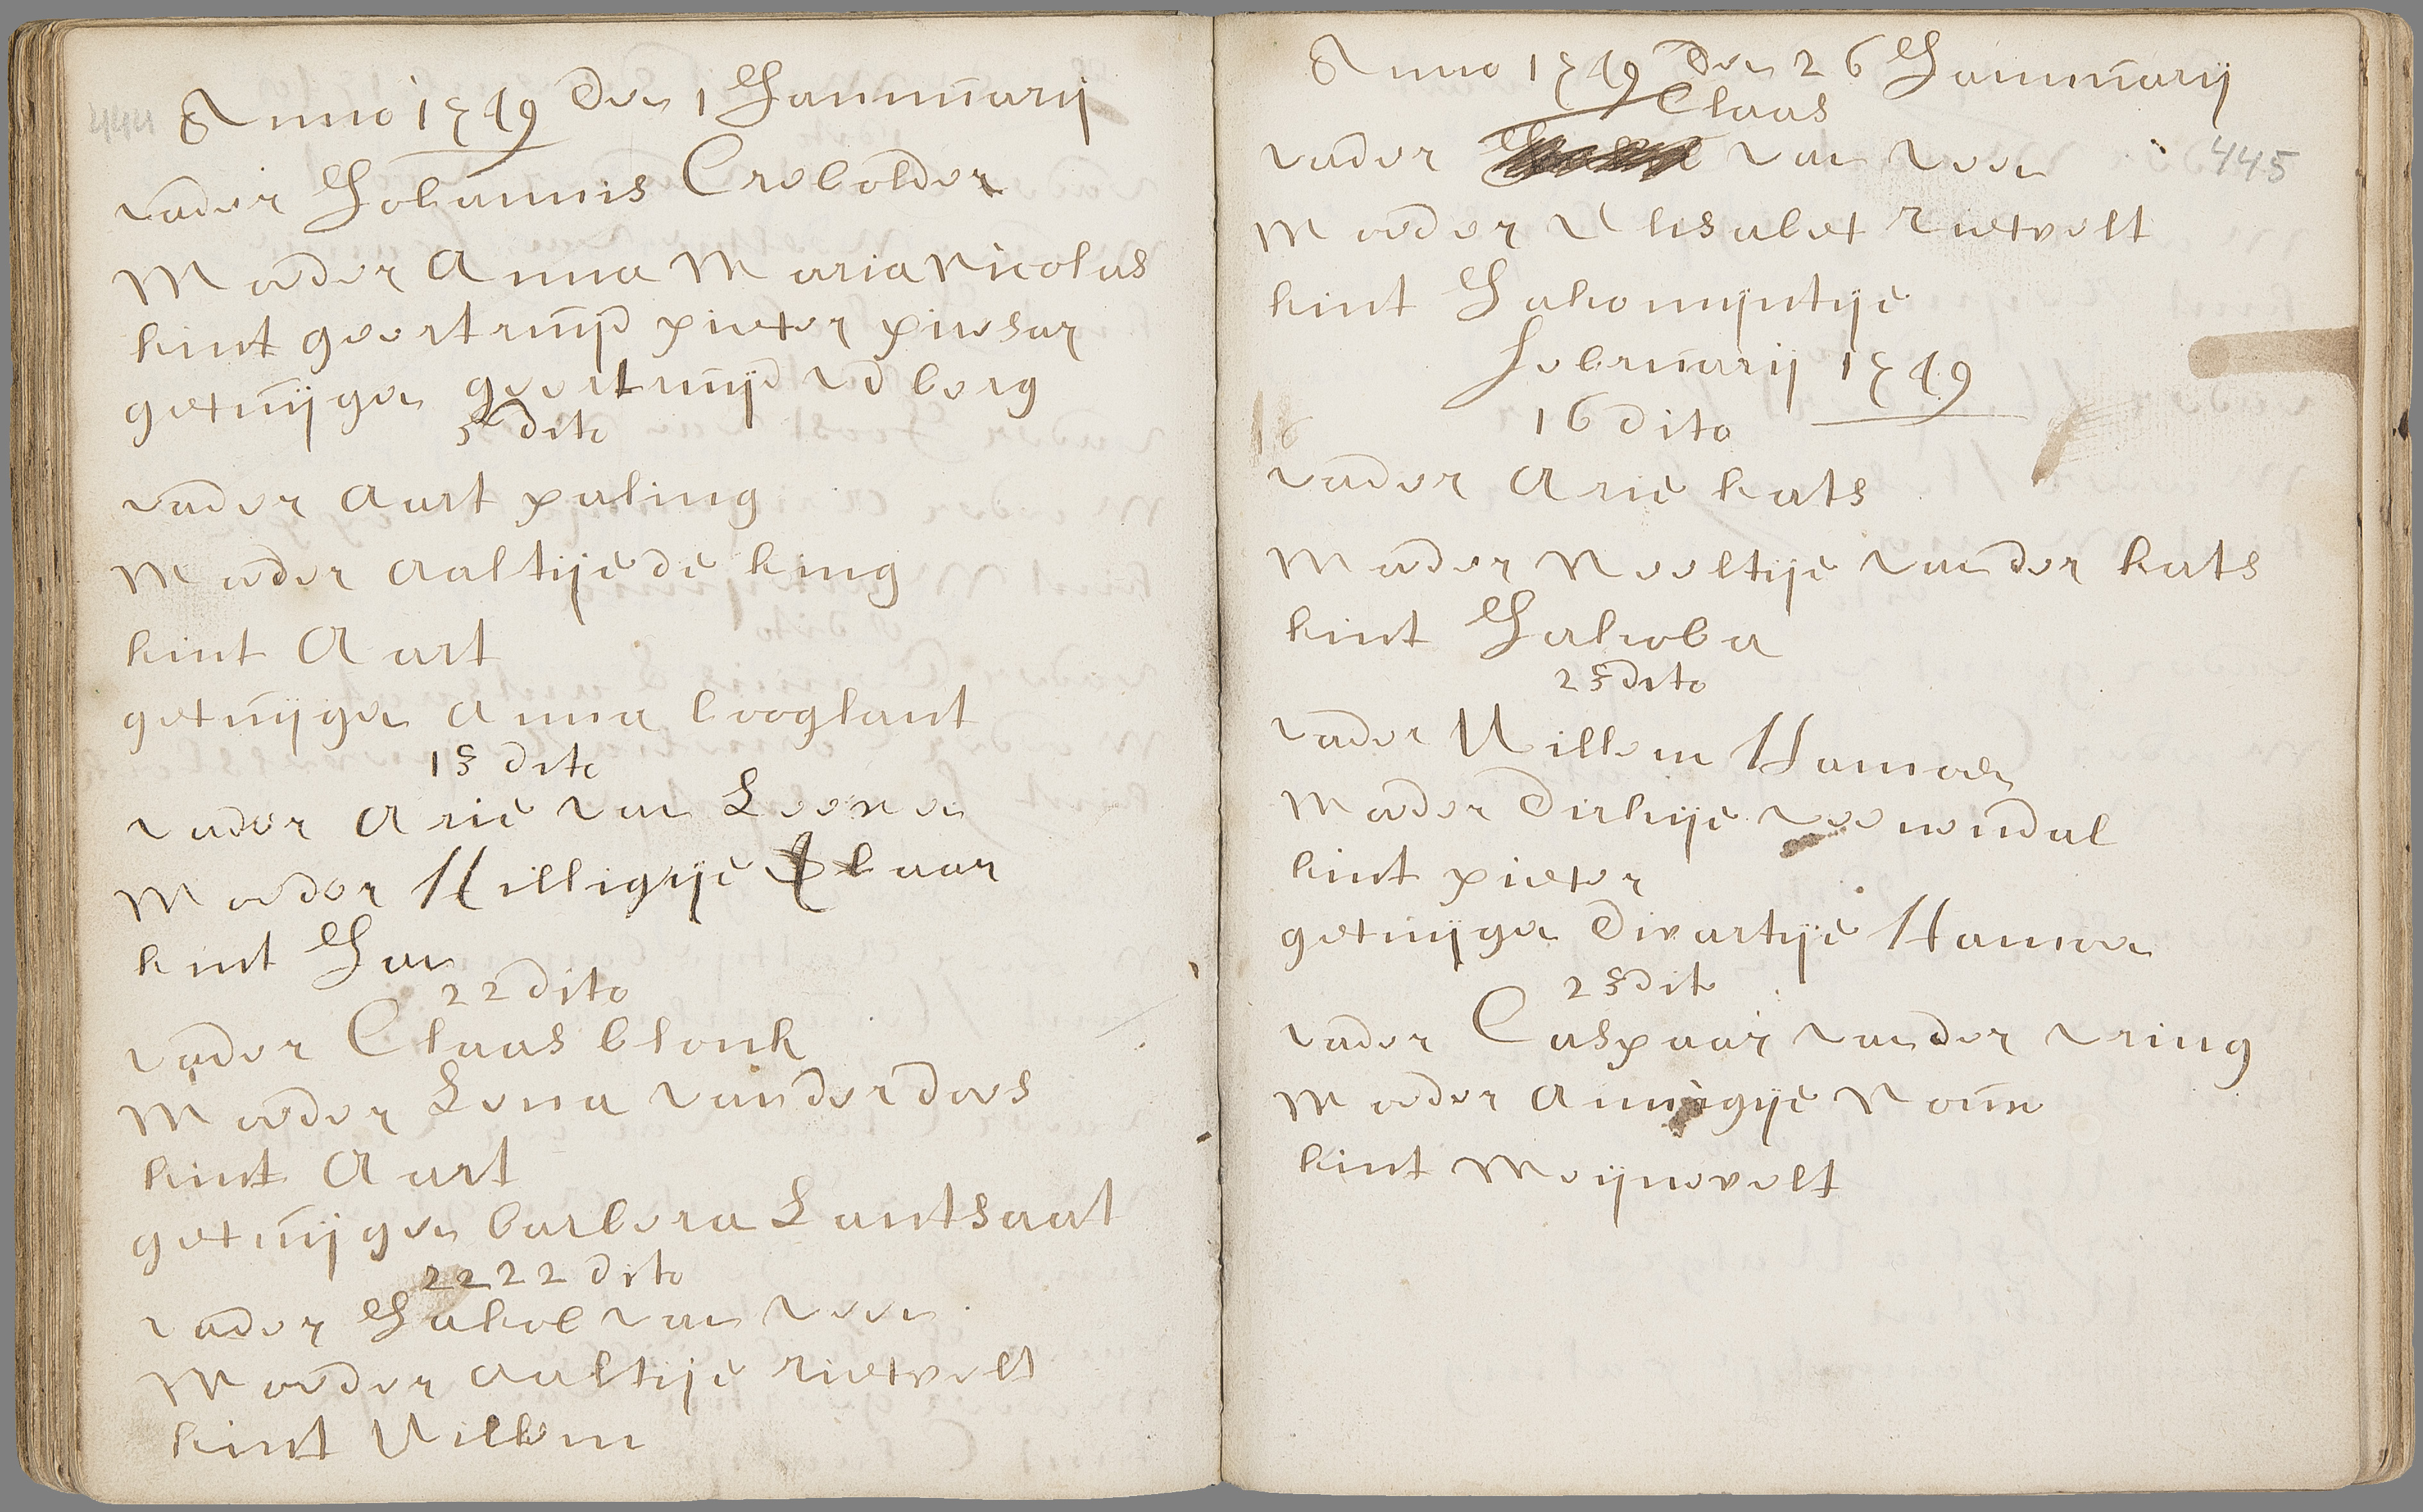 444
Anno 1749 den 1 Jannuarij
vader Johannis Crebolder
Moeder Anna Maria Nicolas
kint geertruijd pieter piresar
getuijgen geertruijd vd berg
5 dito
vader Aart paling
Moeder Aaltije de king
kint Aart
getuijgen Anna hooglant
15 dito
vader Arie van Leenen
Moeder Hilligije Klaar
kint Jan
22 dito
vader Claas blonk
Moeder Lena vander does
kint Aart
getuijgen barbera Lantsaat
22 22 dito
vader Jakob van veen
Moeder Aaltije rietvelt
kint Willem
Anno 1749 den 26 Jannuarij
Claas
vader van veen
445
Moeder Elisabet rietvelt
kint Jakomijntije
Februarij 1749
16 dito
vader Arie kats
Moeder Neeltije vander kats
kint Jakoba
25 dito
vader Willem Hamoen
Moeder Dirkije veenendal
kint pieter
getuijgen Divertije Hamoen
25 dito
vader Caspaar vander vring
Moeder Annigije Noun
kint Meijnevelt